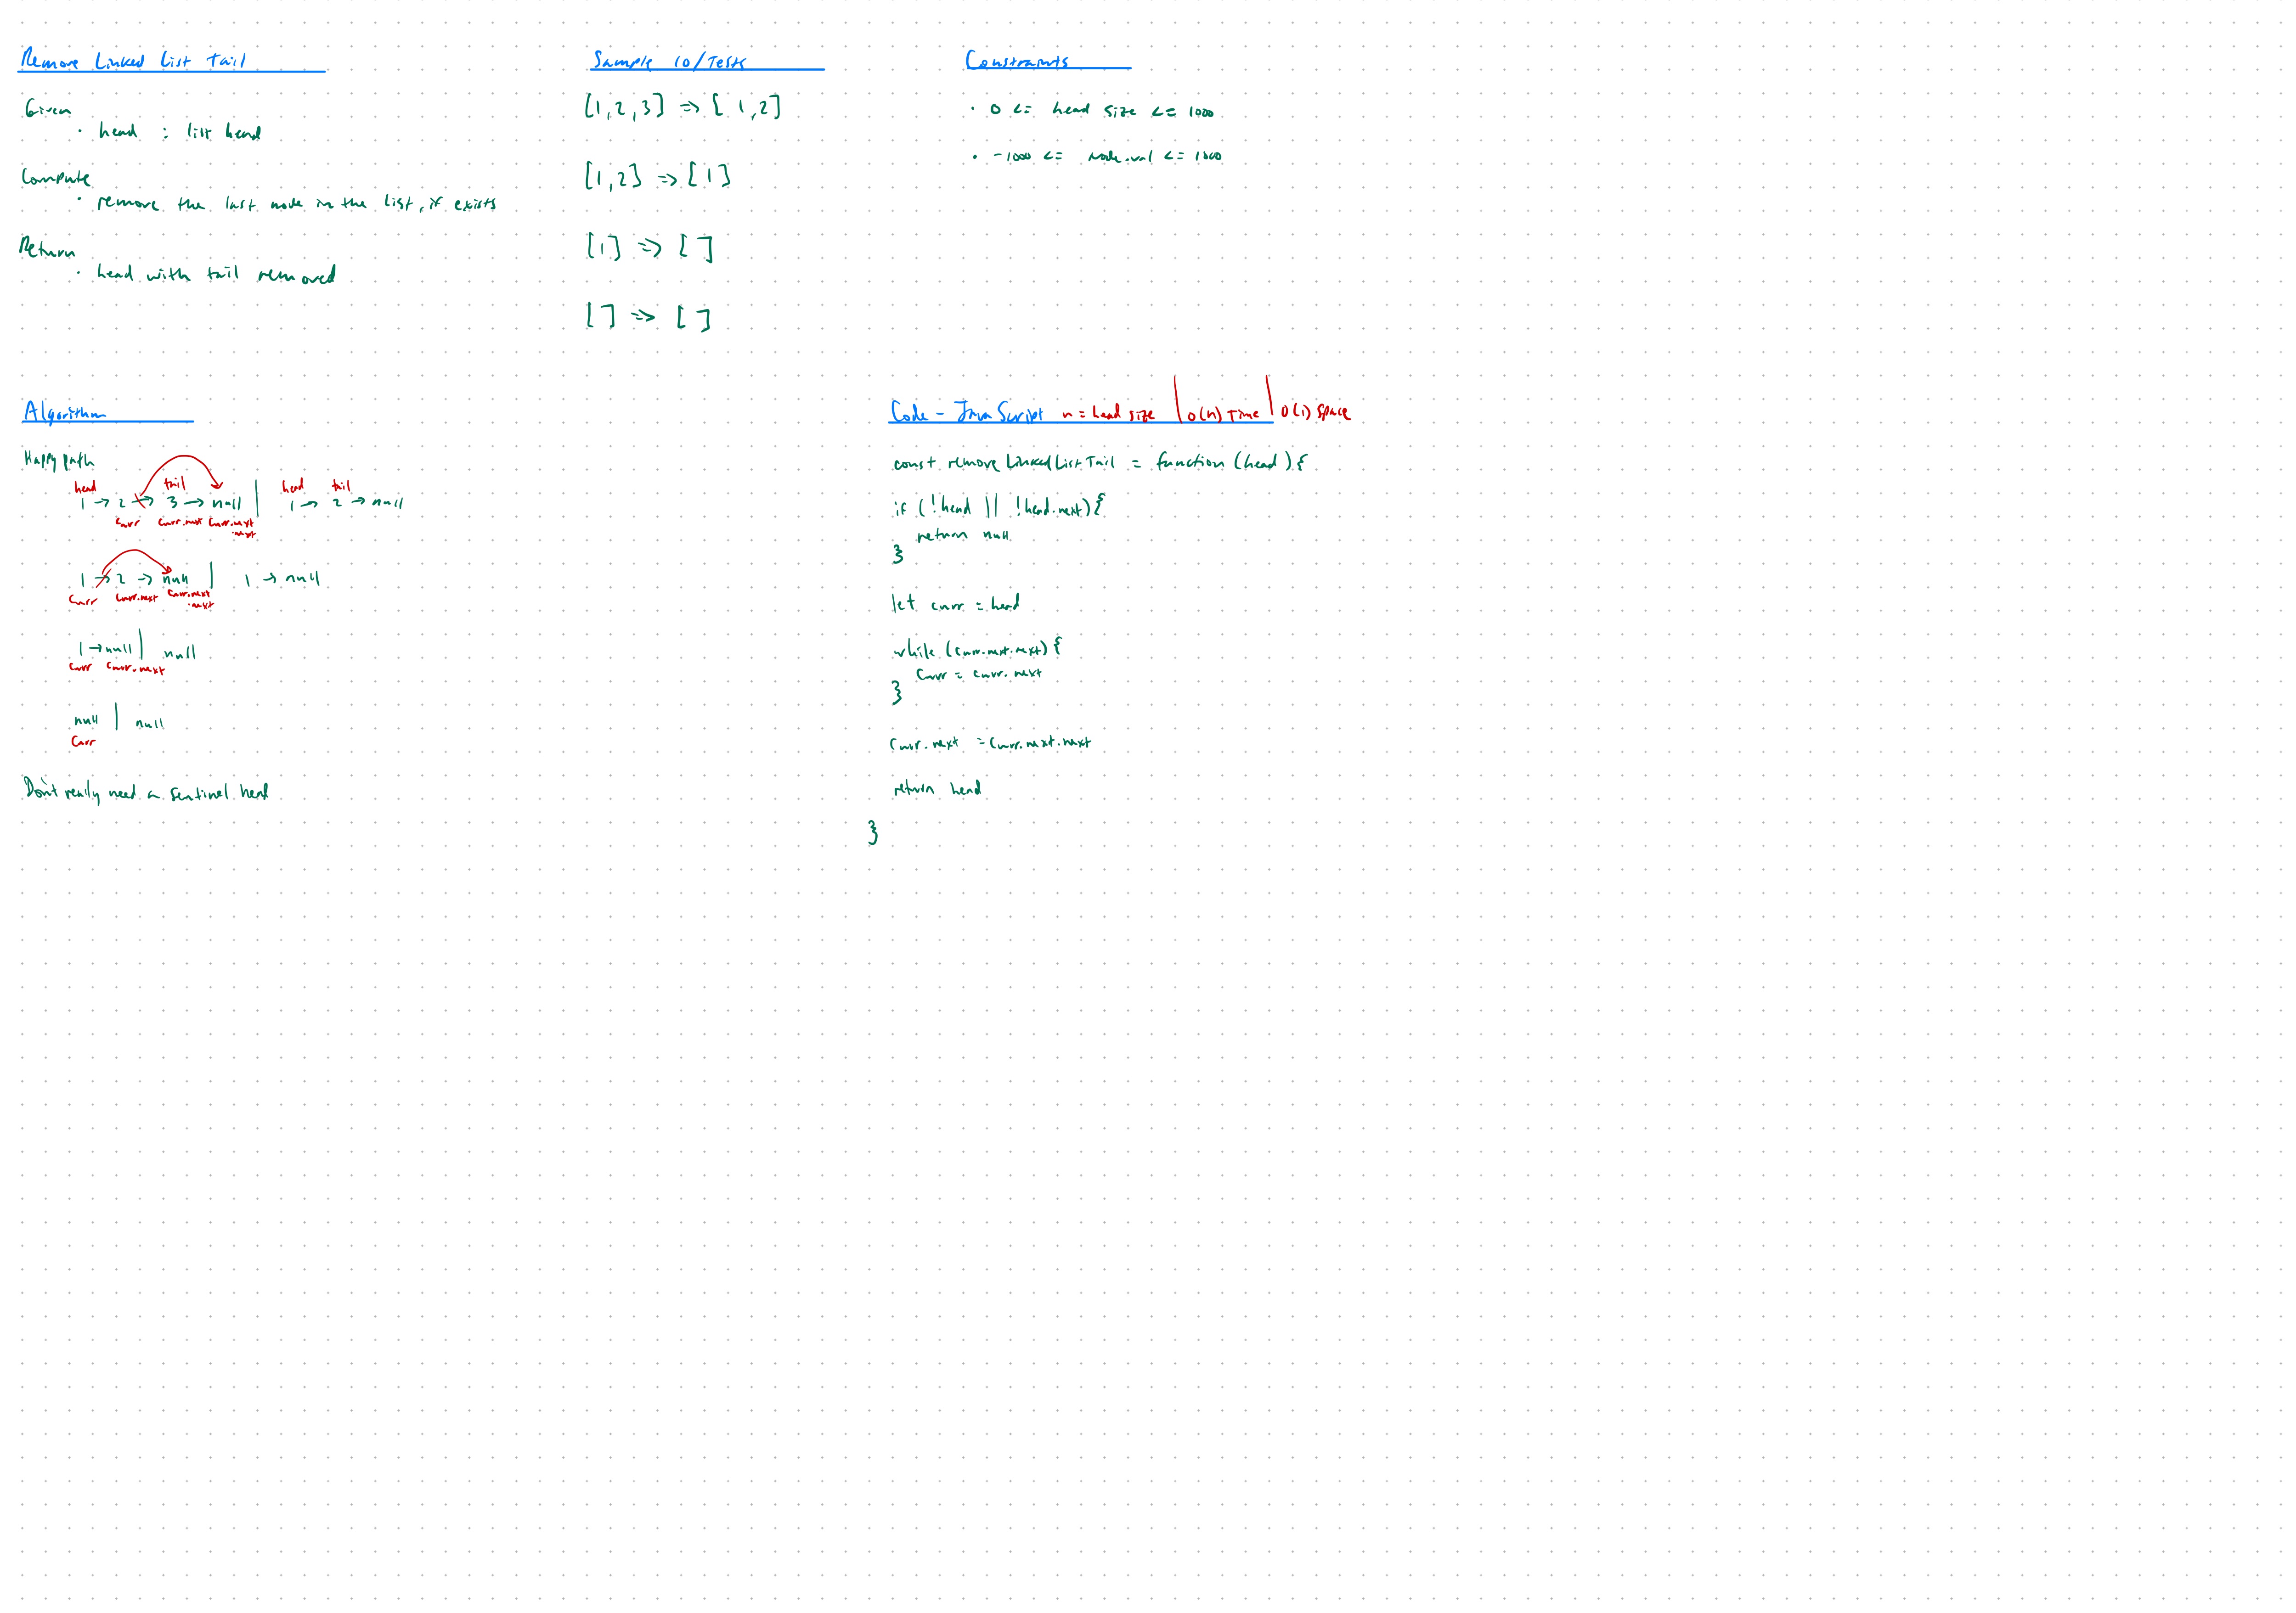 Remove Linked List Tail
Given
· head : list head
Compute
· remove the last node in the list, if exists
Return
· head with tail removed
Sample IO/Tests
[1,2,3] => [1,2]
[1,2] => [1]
[1] => []
[] => []
Constraints
· 0 <= head size <= 1000
· -1000 <= node.val <= 1000
Algorithm
Happy path
head tail | head tail
1 -> 2 -> 3 -> null | 1 -> 2 -> null
curr curr.next curr.next
.next
1 -> 2 -> null | 1 -> null
curr curr.next curr.next
.next
1 -> null | null
curr curr.next
null | null
curr
Don't really need a sentinel head
Code - JavaScript n = head size | O(n) Time | O(1) Space
const removeLinkedListTail = function (head) {
if (!head || !head.next) {
return null
}
let curr = head
while (curr.next.next) {
curr = curr.next
}
curr.next = curr.next.next
return head
}